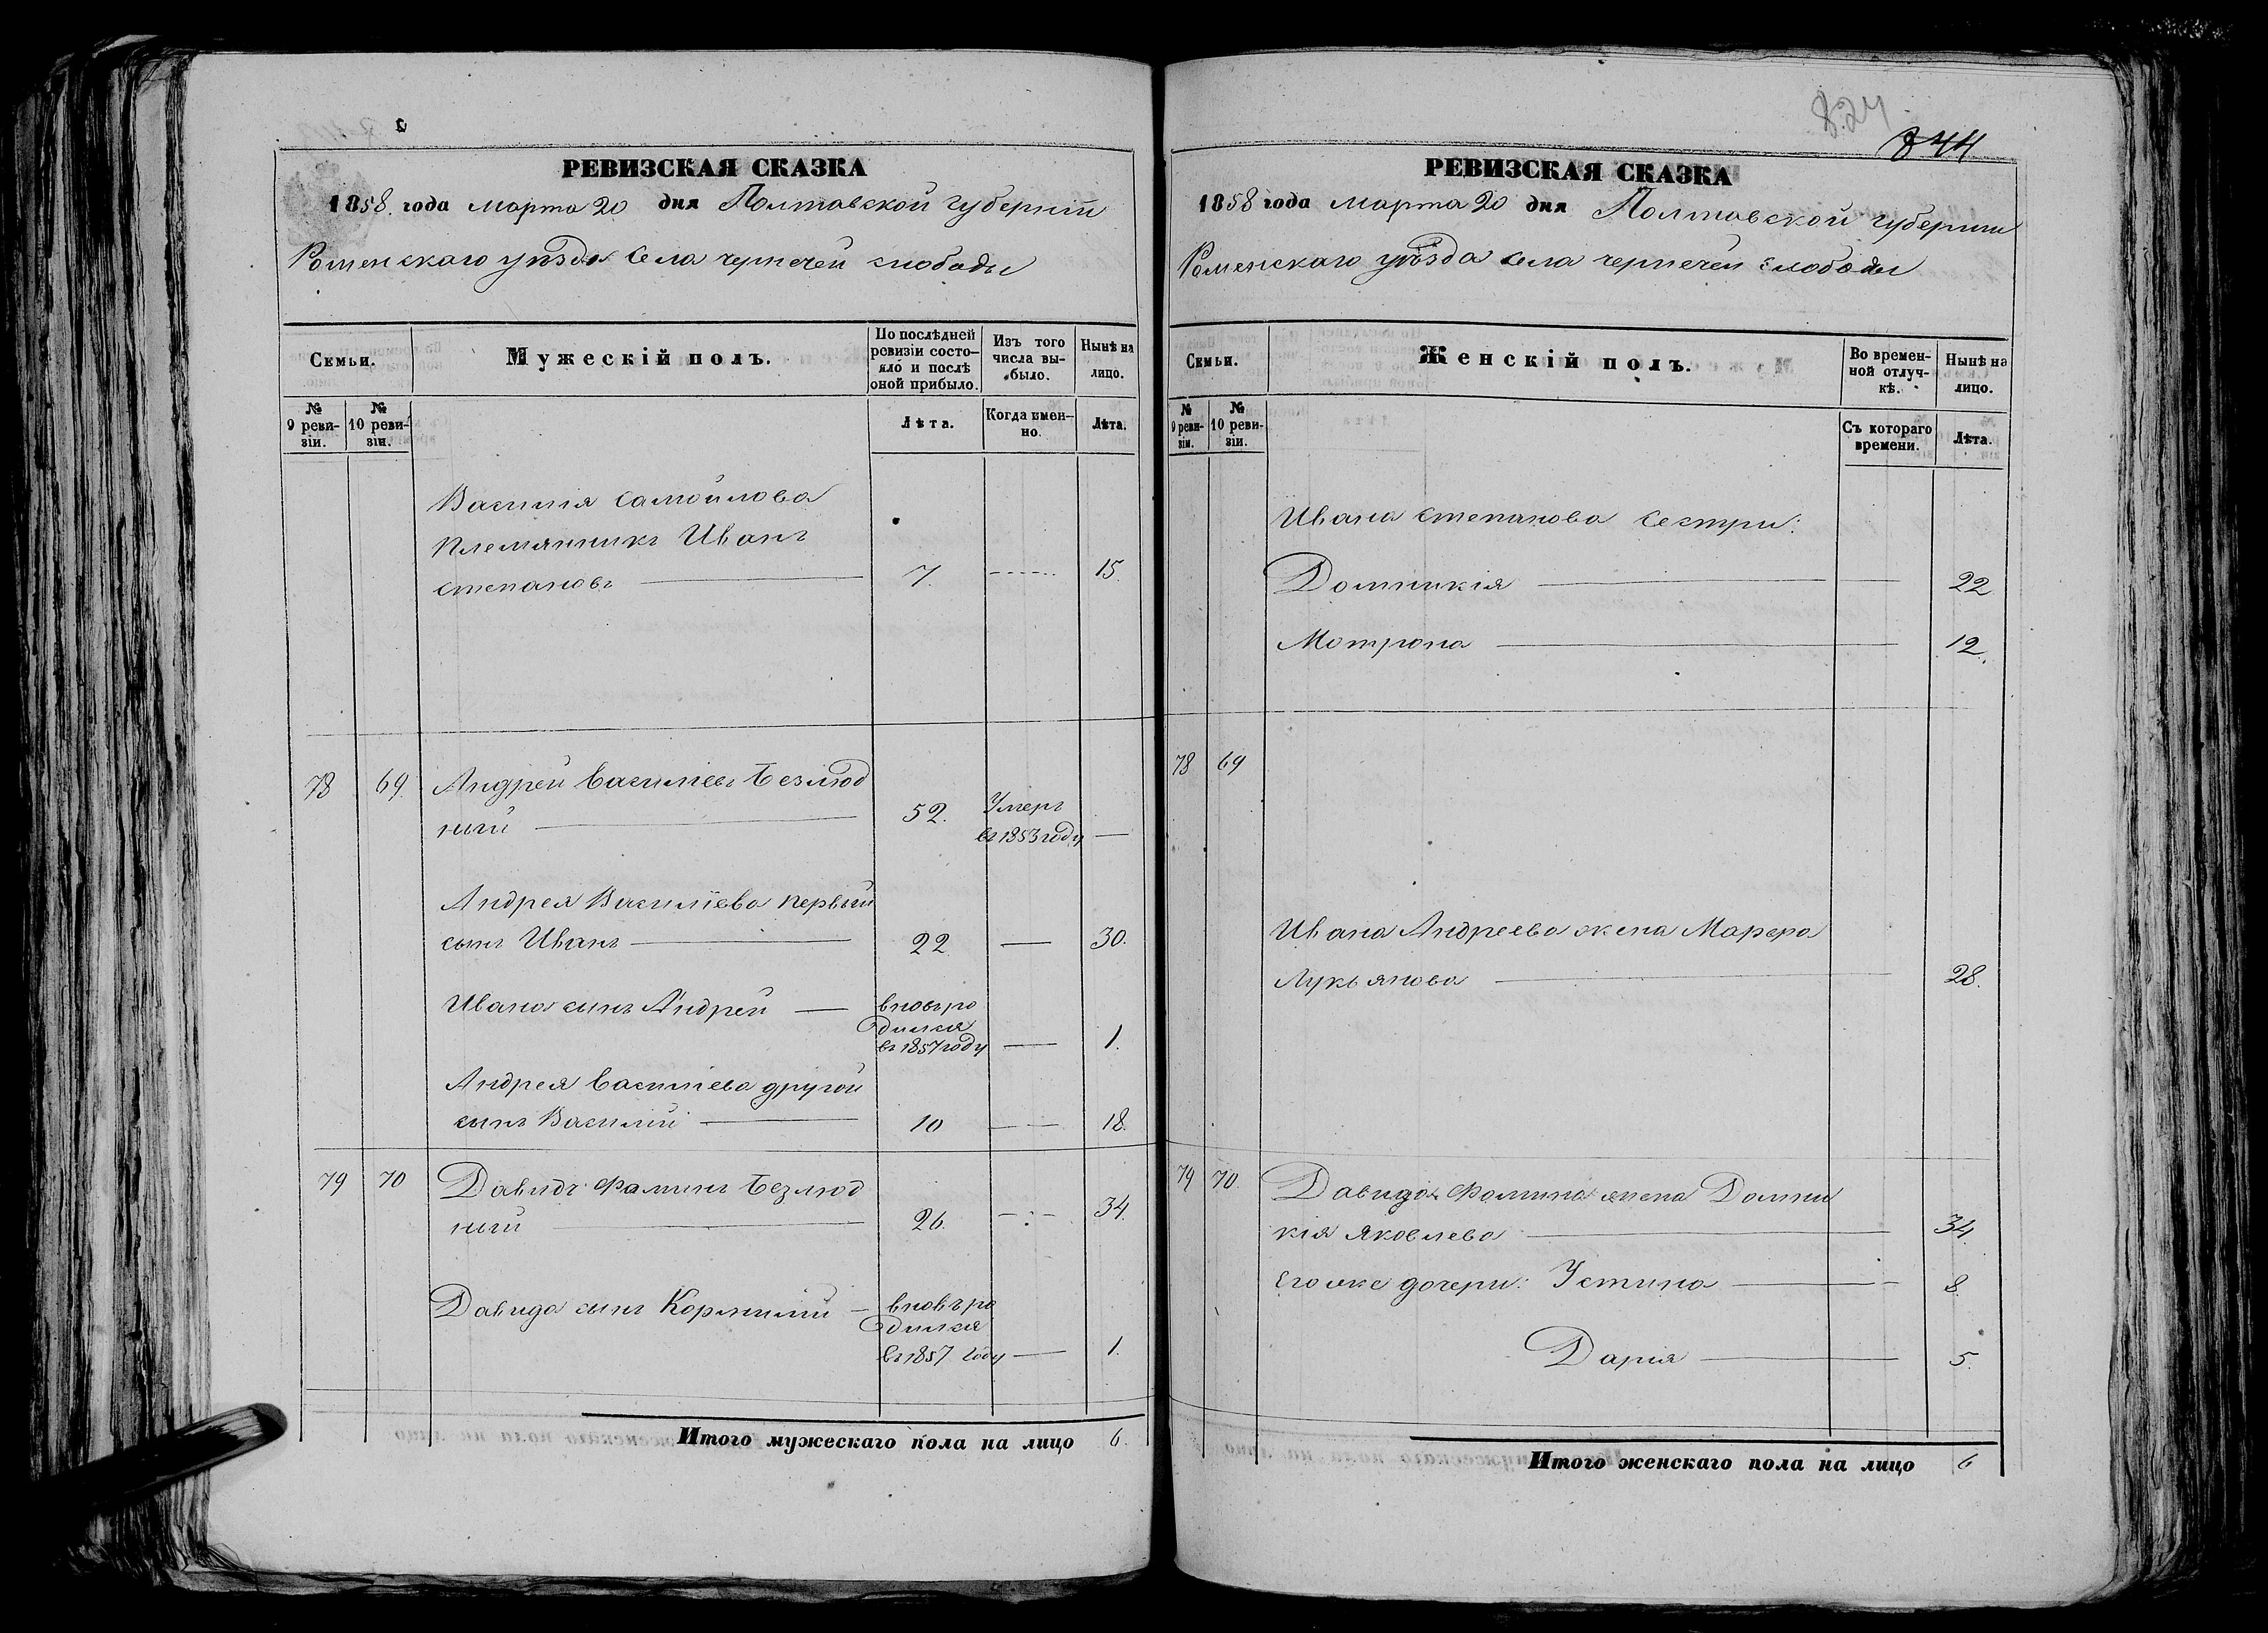 РЕВИЗСКАЯ СКАЗКА
1858 года марта 20 дня Полтавской губерніи
Роменскаго уѣзда села чернечей слободы
Семьи.
Мужескій полъ.
По послѣдней ревизіи состо-
яло и послѣ оной прибыло.
Изъ того числа вы-
было.
Нынѣ на лицо.
№ 9 реви-
зіи.
№ 10 реви-
зіи.
Лѣта.
Когда имен-
но.
Лѣта.
Василія Самойлова
племянникъ Иванъ
степановъ 7. 15.
78 69. Андрей Василіевъ Безлюд
ный 52. Умеръ
въ 1853 году
Андрея Василіева первый
сынъ Иванъ 22 30.
Ивана сынъ Андрей вновь ро
дился
въ 1857 году 1.
Андрея Василіева другой
сынъ Василій 10 18.
79 70 Давидъ Фоминъ Безлюд
ный 26. 34.
Давида сынъ Корнилій вновь ро
дился
въ 1857 году 1.
Итого мужескаго пола на лицо 6.
824
844
РЕВИЗСКАЯ СКАЗКА
1858 года марта 20 дня Полтавской губерніи
Роменскаго уѣзда села чернечей слободы
Семьи.
Женскій полъ.
Во времен-
ной отлуч-
кѣ.
Нынѣ на лицо.
№ 9 реви-
зіи.
№ 10 реви-
зіи.
Съ котораго времени.
Лѣта.
Ивана степанова сестри:
Домникія 22
Мотрона 12.
78 69
Ивана Андреева жена Марфа
Лукьянова 28.
79 70. Давида Фомина жена Домни
кія Яковлева 34
его же дочери: Устина 8.
Дарія 5.
Итого женскаго пола на лицо 6